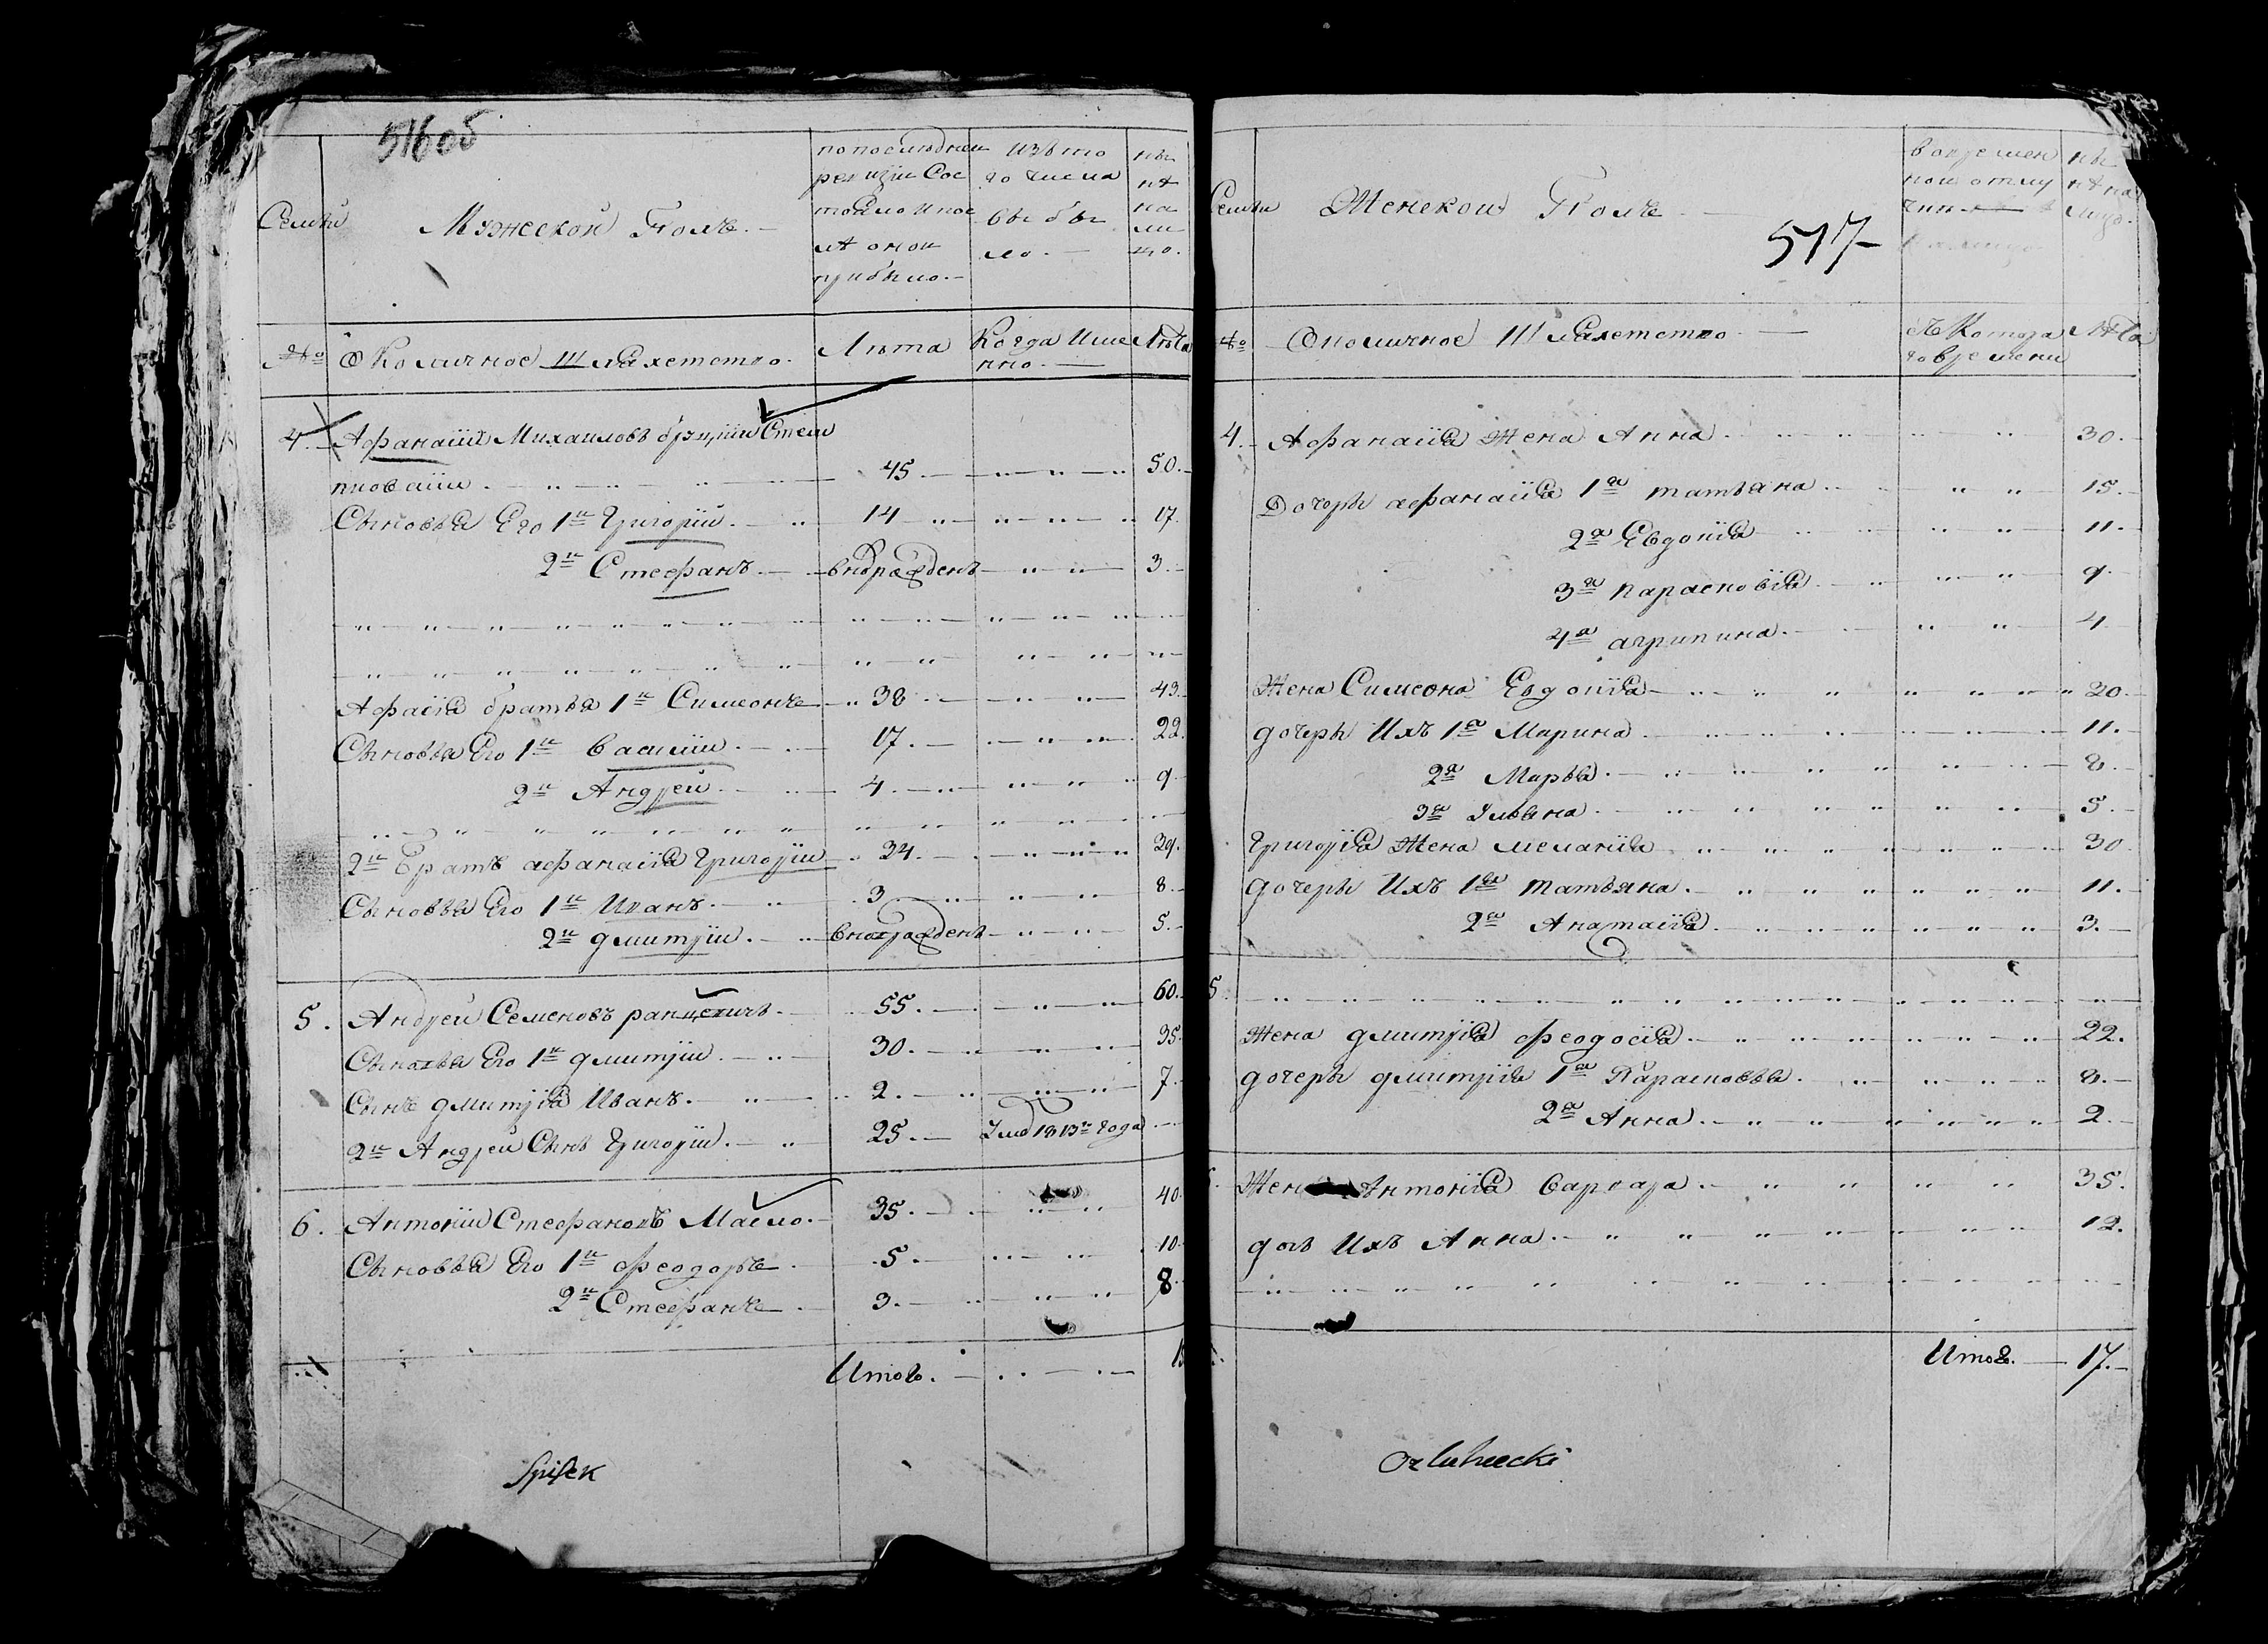 516 об
Семьи
Мужескои Полъ. —
попоследнеи
ревизіи Сос
тоялоипос
лѣ онои
прибыло. —
Изъто
го числа
выбы
ло. —
ны
нѣ
на
ли
цо.
№
Околичное Шляхетство.
Лѣта
Когда Име
нно. —
Лѣта
4. Афанаіи Михаиловъ Стеи
45. — 50. —
Сыновья Его 1й Григоріи. — 14 — 17.
2й Стефанъ. — 3. —
Афасія братья 1й Симеонъ — 38 — 43. —
Сыновья Его 1й Василіи. — 17. — 22.
2й Андреи. — 4. — 9
2й Братъ афанасія Григоріи 24. — 29.
Сыновья Его 1й Иванъ. — 3 — 8. —
2й дмитріи. — 5. —
5. Андреи Семеновъ — 55. — 60. —
Сыновья Его 1й дмитріи — 30. — 35.
Сынъ дмитрія Иванъ. — 2. — 7.
2й Андреи Сынъ Григоріи. — 25. — 1813го года
6. Антоніи Стефановъ Масло. — 35. — 40.
Сыновья Его 1й феодоръ — 5. — 10.
2й Стефанъ — 3. — 8
Итого. —
Spisek
Семьи
Женскои Полъ
517
вовремен
нои отлу
чки
ны
нѣ на
лицо.
№
Околичное Шляхетство —
съ Котора
го времени
Лѣта
4. — Афанаіія Жена Анна. — 30. —
Дочеры афанаіія 1я татьяна — 15. —
2я Евдокія — 11. —
3я параскові́я — 9
4я агрипина. — 4
Жена Симеона Евдокія — 20. —
дочеры Ихъ 1я Марина. — 11. —
2я Марья. — 8. —
3я Ульяна. — 5. —
Григорія Жена меланія 30
дочеры Ихъ 1я татьяна. — 11. —
2я Анатасія. — 3. —
5.
Жена дмитрія феодосія. — 22.
дочеры дмитрія 1я Парасковья. — 8. —
2я Анна. — 2. —
Жена Антонія Варвара. — 35.
дочь Ихъ Анна. — 12.
Итого. — 17. —